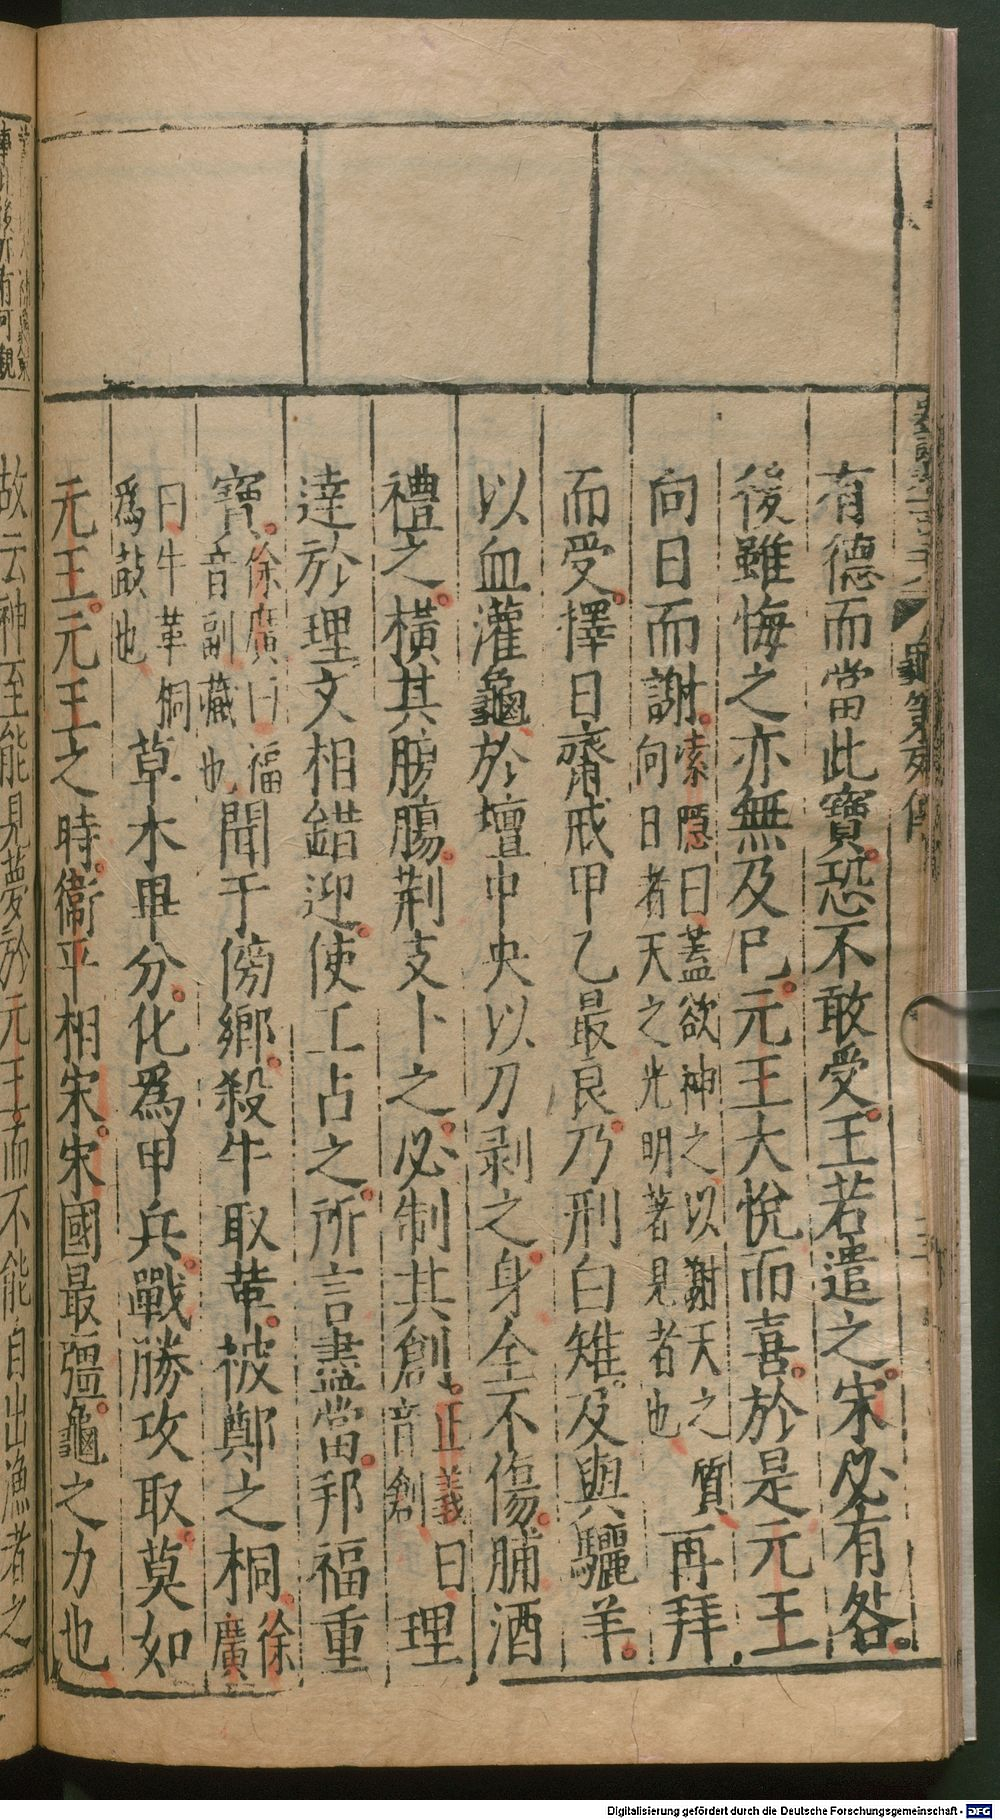 有德而當此寶。恐不敢受。王若遣之。宋必有咎。
後雖悔之亦無及已。元王大悅而喜。於是元王
向日而謝。索隱曰蓋欲神之以謝天之質
向日者天之光明著見者也
再拜
而受。擇日齋戒甲乙最良。乃刑白雉。及與驪羊。
以血灌龜於壇中央以刀剥之身全不傷。脯酒
禮之。橫其腹腸。荆支卜之。必制其創。正義曰
音創
理
達於理文相錯迎。使工占之。所言盡當。邦福重
寶。徐廣曰福
音副藏也
聞于傍鄉。殺牛取革。被鄭之桐。徐
廣
曰牛革桐
爲鼓也
草木畢分。化爲甲兵。戰勝攻取。莫如
元王。元王之時。衞平相宋。宋國最彊。龜之力也
故云神至能見夢於元王而不能自出漁者之
龜策列傳
Digitalisierung gefördert durch die Deutsche Forschungsgemeinschaft - DFG